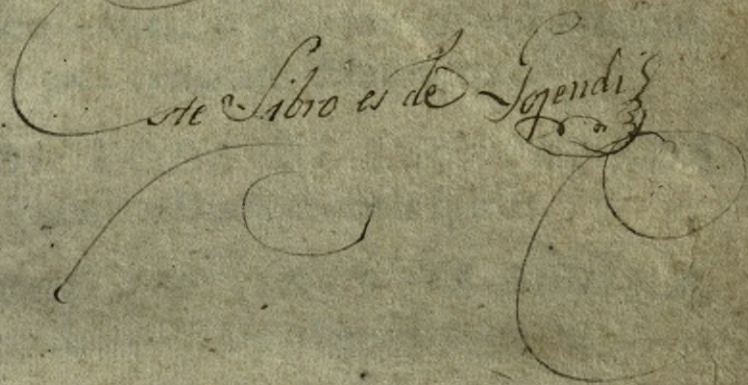 Este Libro es de Gogendi